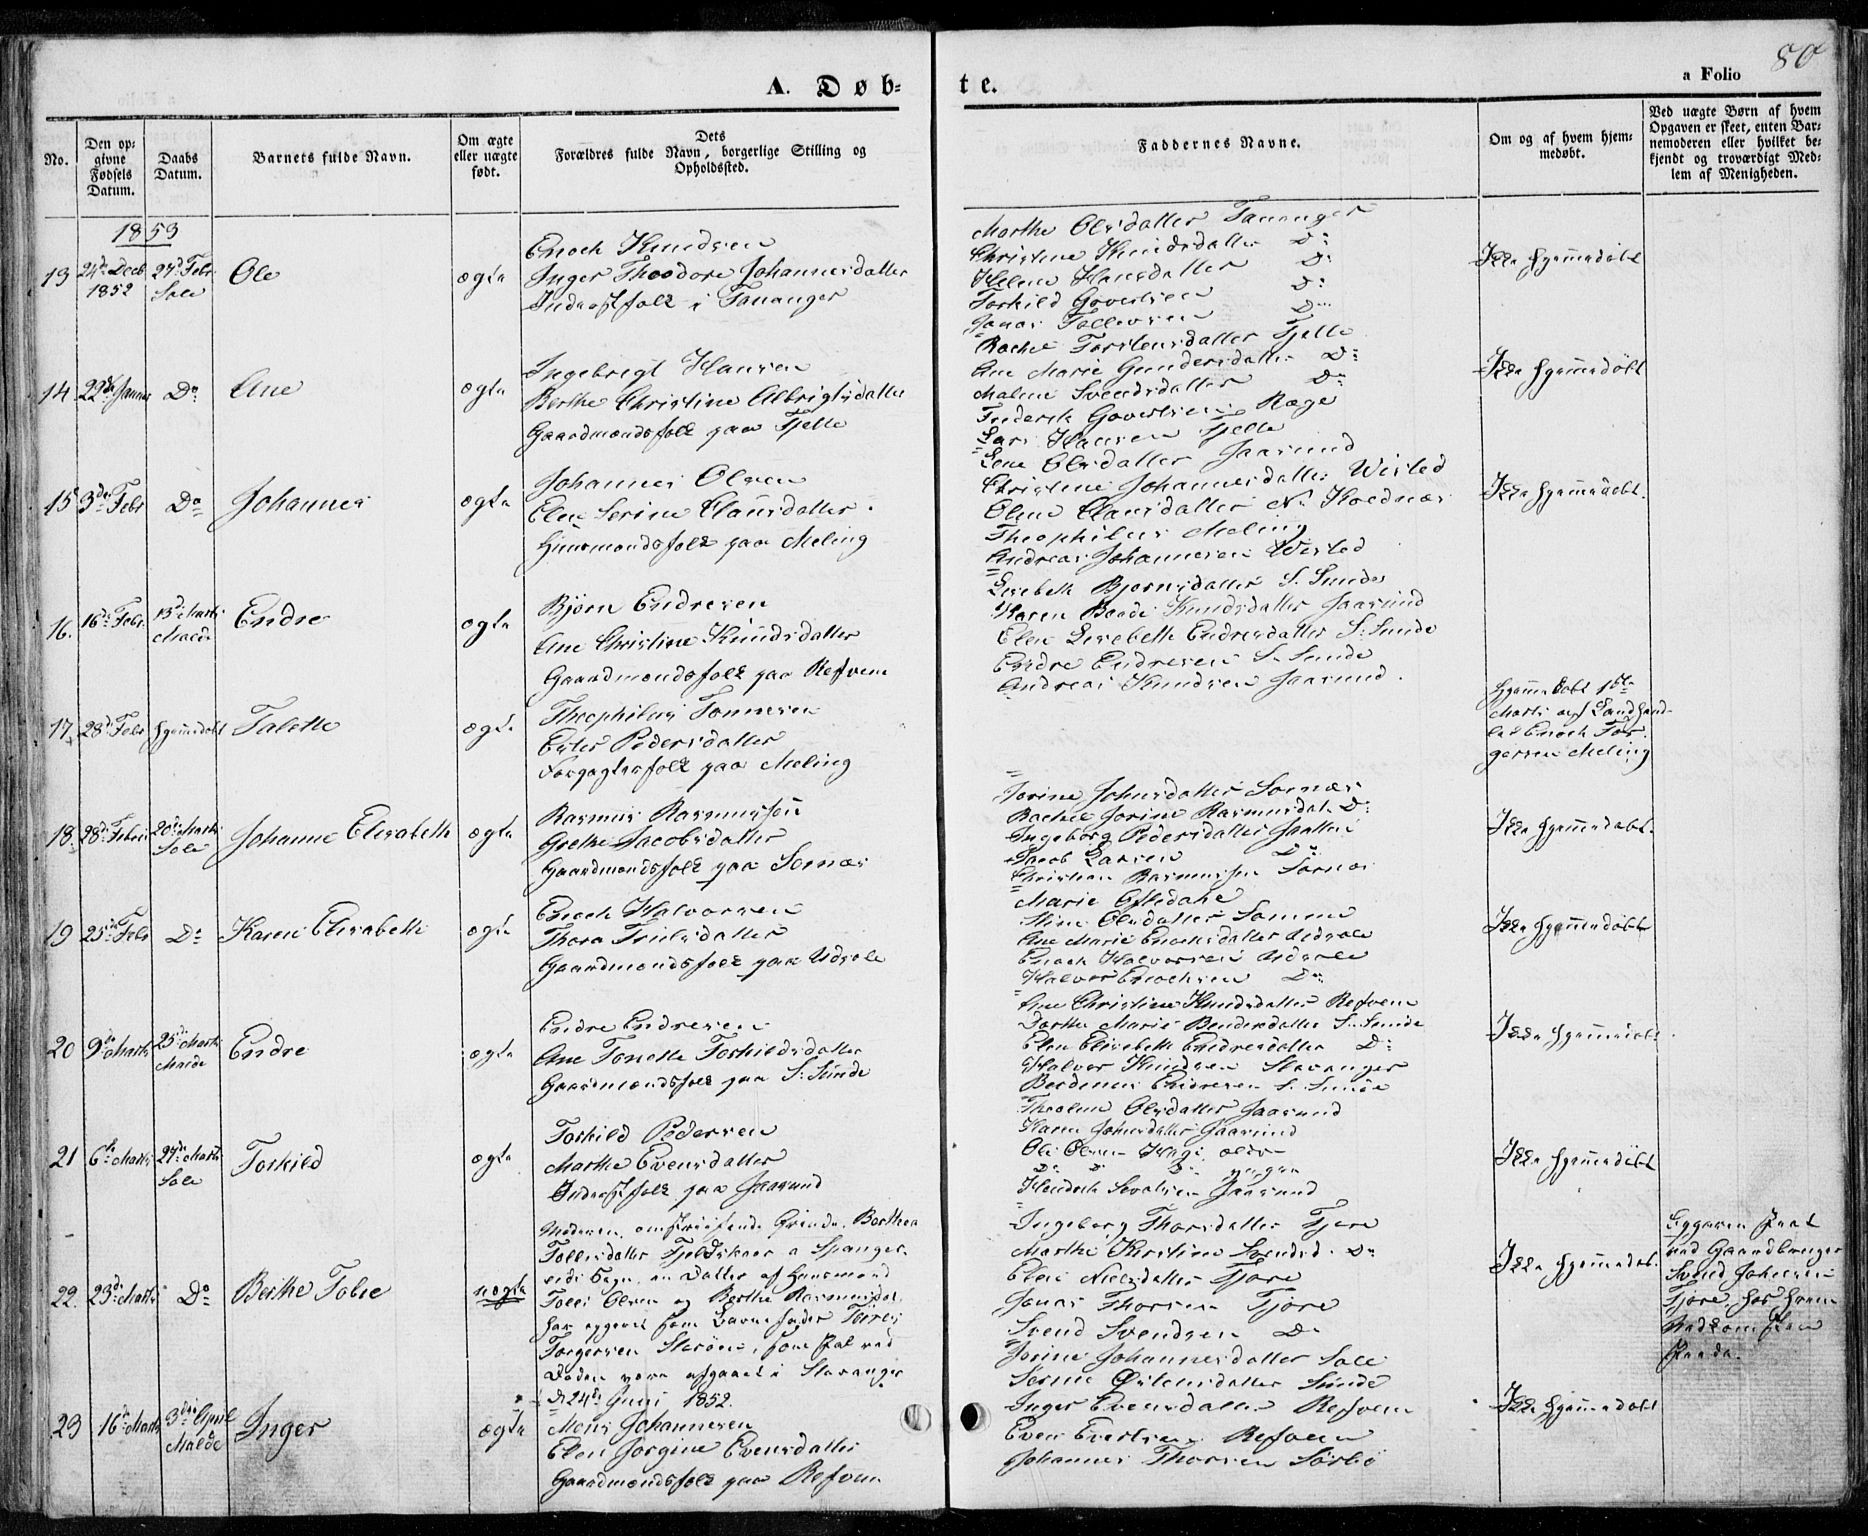 80
a Folio
A. Døb=
te.
No.
Den op=
givne
Fødsels
Datum.
Daabs
Datum.
Barnets fulde Navn.
Om ægte
eller uægte
født.
Dets
Forældres fulde Navn, borgerlige Stilling og
Opholdssted.
Faddernes Navne.
Om og af hvem hjem=
medøbt.
Ved uægte Børn af hvem
Opgaven er skeet, enten Bar=
nemoderen eller hvilket be=
kjendt og troværdigt Med=
lem af Menigheden.
1853
13
24de Decb
1852
27de Febr
Sole
Ole
ægte
Enoch Knudsen
Inger Theodore Johannesdatter
Inderstfolk i Tananger
Marthe Olsdatter Tananger
Christine Knudsdatter Do
Helene Hansdatter Do
Torkild Govertsen Do
Jonas Tollevsen Do
Ikke hjemmedøbt
14
22de Januar
Do
Ane
ægte
Ingebrigt Hansen
Berthe Christine Albrigtsdatter
Gaardmandsfolk paa Tjelte
Rachel Torstensdatter Tjelte
Ane Marie Gundersdatter Do
Malene Svendsdatter Do
Frederik Govertsen Ræge
Lars Hansen Tjelte
Ikke hjemmedøbt
15
3die Febr
Do
Johannes
ægte
Johannes Olsen
Elen Serine Clausdatter
Huusmandsfolk paa Meling
Lene Olsdatter Jaasund
Christine Johannesdatter Wisted
Olene Clausdatter N. Hoednæs
Theophilus Meling
Andreas Johannesen Wisted
Ikke hjemmedøbt.
16.
16de Febr.
13de Marts
Malde
Endre
ægte
Bjørn Endresen
Ane Christine Knudsdatter
Gaardmandsfolk paa Refvem
Lisebeth Bjørnsdatter S. Sunde
Karen Knudsdatter Jaasund
Elen Lisebeth Endresdatter S. Sunde
Endre Endresen S. Sunde
Andreas Knudsen Jaasund.
17
28de Febr
hjemmedøbt
Talette
ægte
Theophilus Tønnesen
Ester Pedersdatter
Forpagterfolk paa Meling
hjemmedøbt 1ste
Marts af Landhand-
ler Enoch Tor-
gersen Meling
18.
28de Febr
20de Marts
Sole
Johanne Elisabeth
ægte
Rasmus Rasmussen
Grethe Jacobsdatter
Gaardmandsfolk paa Sømnæs
Jorine Johnsdatter Sømnæs
Rachel Jorine Rasmusdat. Do
Ingeborg Pedersdatter Jaatten
Jacob Larsen Do
Christian Rasmussen Sømnæs
Ikke hjemmedøbt.
19
25de Febr
Do
Karen Elisabeth
ægte
Enoch Halvorsen
Thora Trulsdatter
Gaardmandsfolk paa Udsole
Marie Eftedahl
Stine Olsdatter Sømme
Ane Marie Enochsdatter Udsole
Enoch Halvorsen Udsole
Halvor Enochsen Do
Ikke hjemmedøbt
20
9de Marts
25de Marts
Malde
Endre
ægte
Endre Endresen
Ane Tonette Torkildsdatter
Gaardmandsfolk paa S. Sunde
Ane Christine Knudsdatter Refvem
Dorthe Marie S. Sunde
Elen Elisabeth Endresdatter Do
Halvor Knudsen Stavanger
Endresen S. Sunde
Ikke hjemmedøbt
21
6te Marts
27de Marts
Sole
Torkild
ægte
Torkild Pedersen
Marthe Evensdatter
Inderstfolk paa Jaasund
Theoline Olsdatter Jaasund
Karen Johnsdatter Jaasund
Ole Olsen Hage ældre
Do Do Do yngre
Jaasund
Ikke hjemmedøbt
22.
23de Marts
Do
Berthe Tobie
uægte
Moderen, omstreifende Qvinde Berthea
Tollisdatter Fjeldskaar a
reds Sogn, en Datter af Huusmand
Tolli Olsen og Berthe Rasmusdat.
har opgivet som Barnefader
Torgersen som skal ved
Døden være afgaaet i Stavanger
d. 24de Juni 1852.
Ingeborg Thorsdatter Tjore
Marthe Kirstine Svendsd. Do
Elen Nielsdatter Tjore
Jonas Thorsen Tjore
Svend Svendsen Do
Ikke hjemmedøbt.
Opgaven skeet
ved Gaardbruger
Svend Johnsen
Tjore, hos hvem
Vedkommende
23
16de Marts
3die April
Malde
Inger
ægte
Mons Johannesen
Elen Jorgine Evensdatter
Gaardmandsfolk paa Refvem
Jorine Johannesdatter Sole
Serine Sunde
Inger Evensdatter Refvem
Even Evertsen Refvem
Johannes Thorsen Sørbø
Ikke hjemmedøbt